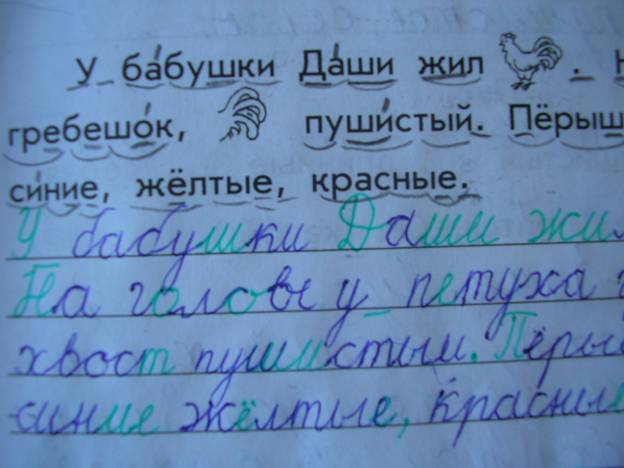 У бабушки Даши жил . Н
гребешок, пушистый. Пёрыш
синие, жёлтые, красные.
У бабушки Даши жил
На голове у петуха г
хвост пушистыи. Пёры
синие жёлтые, красные